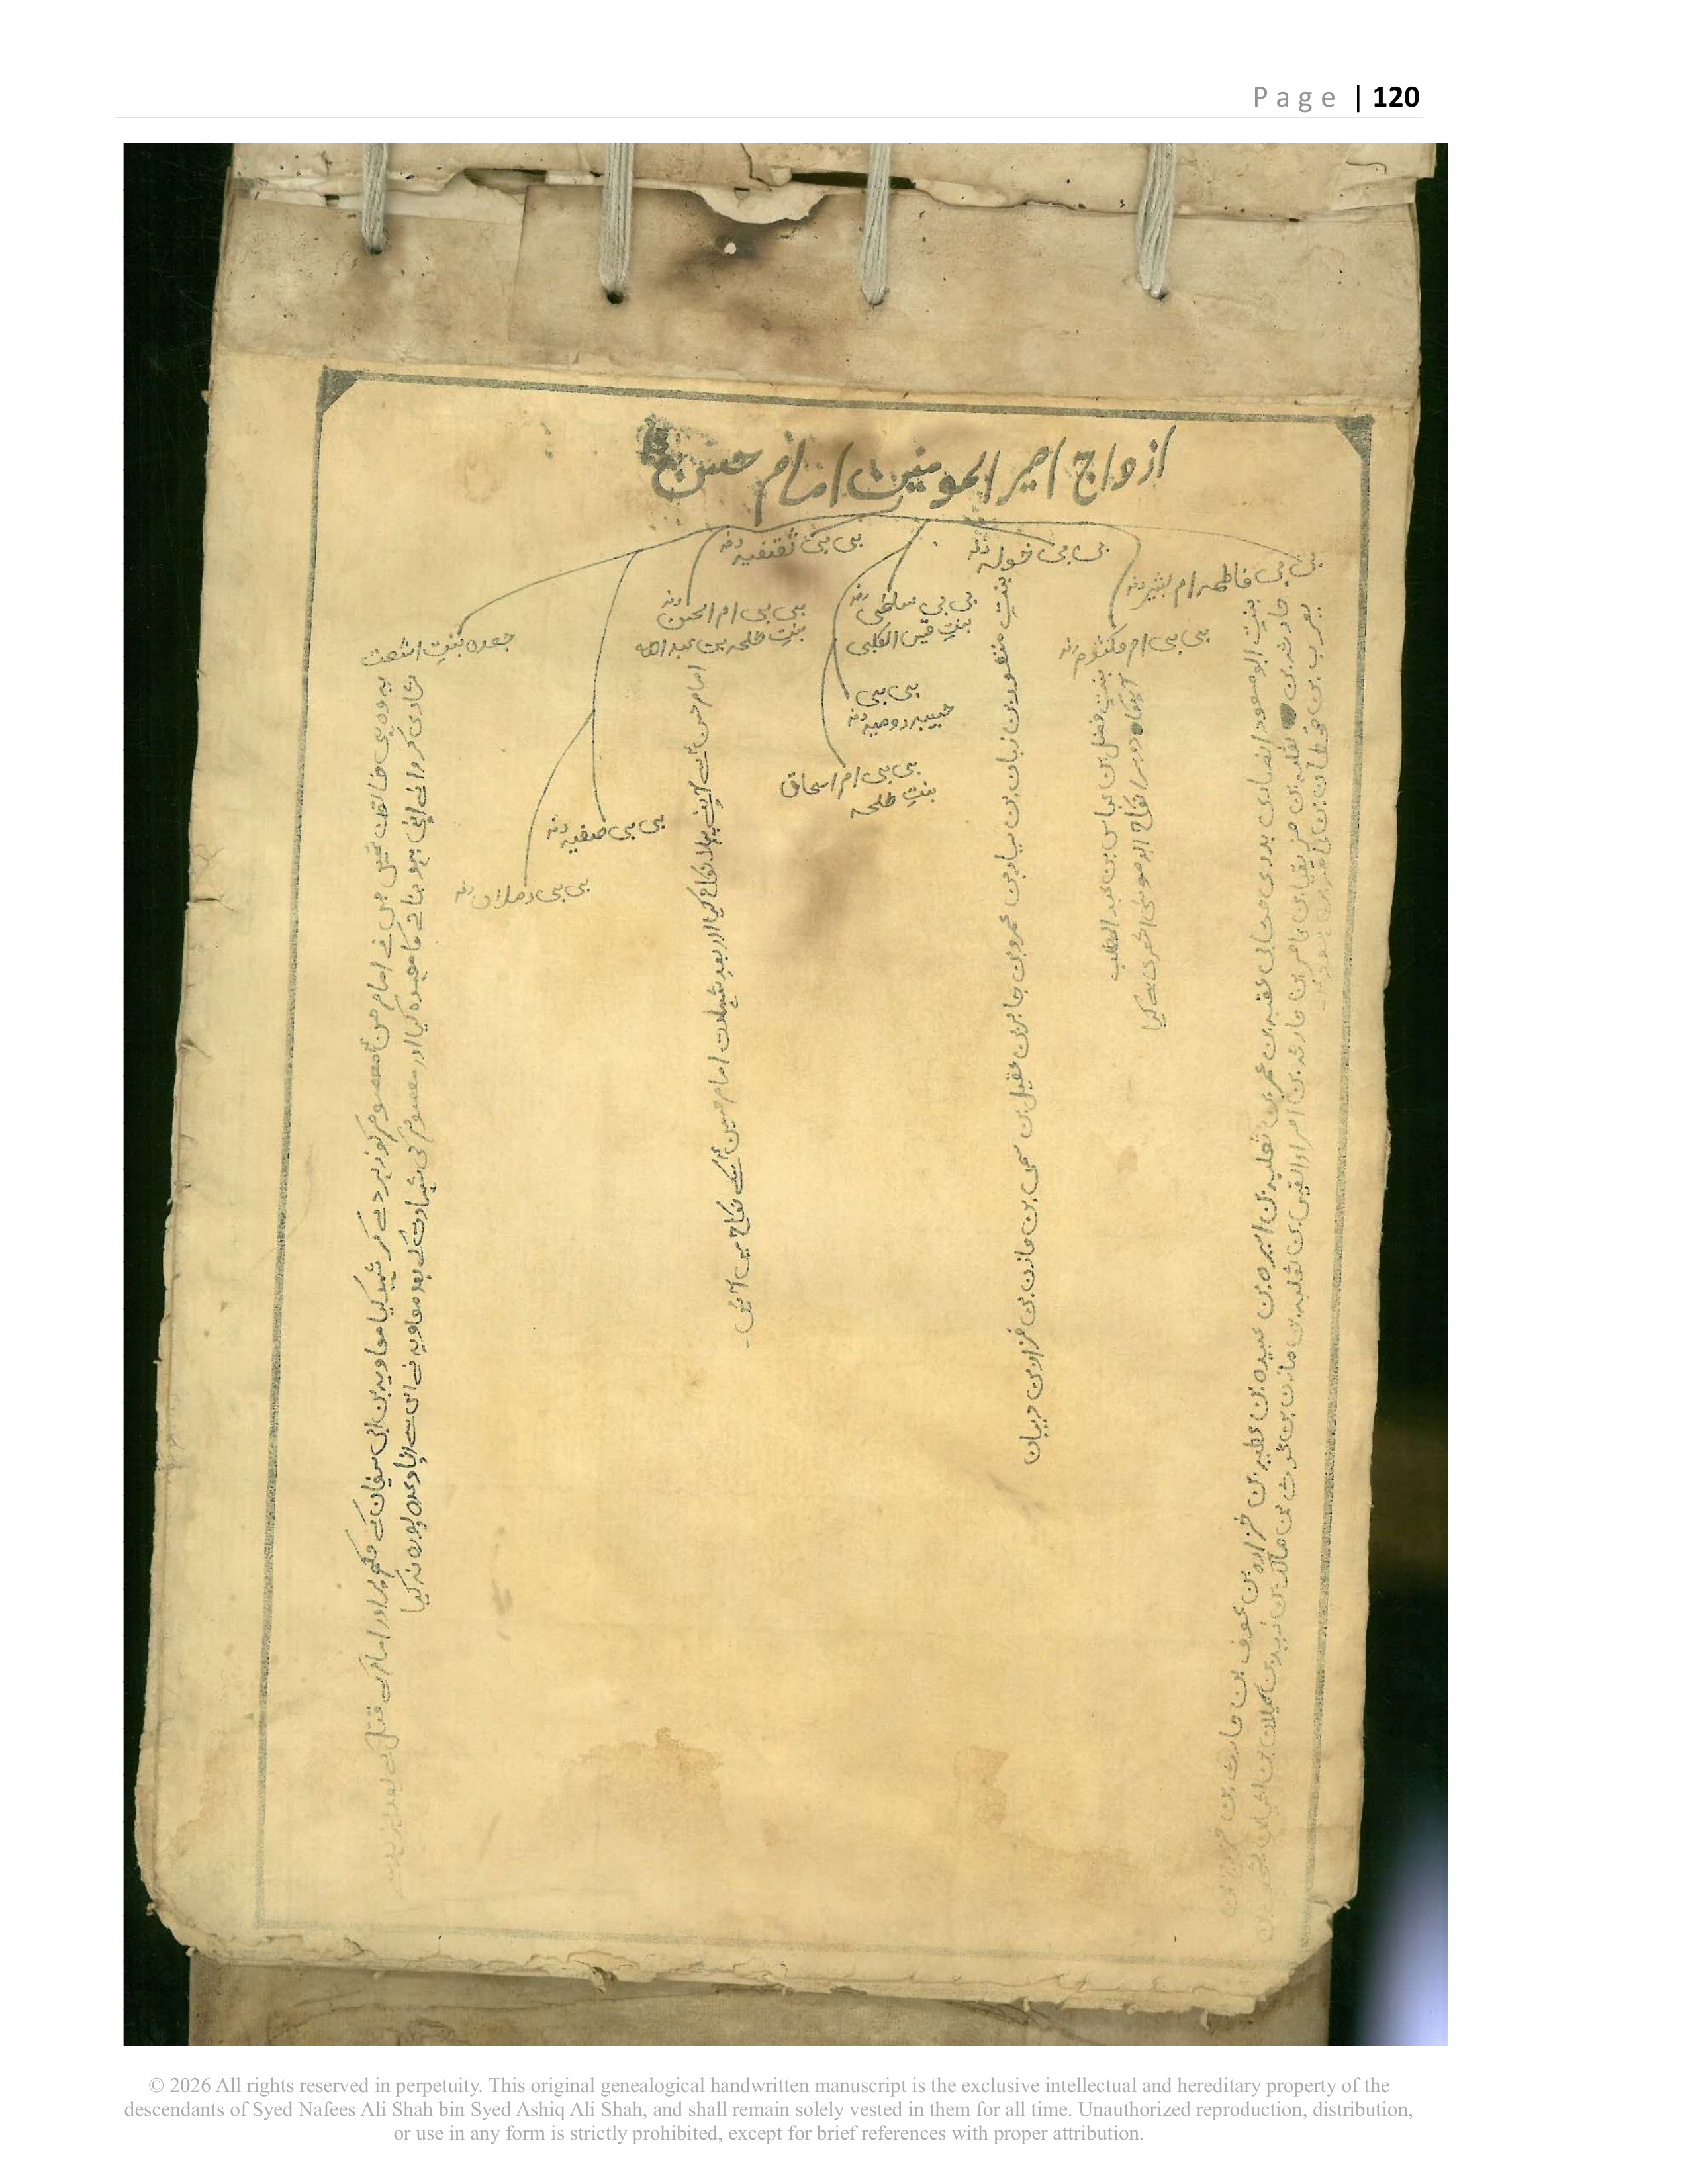 Page | 120
ازواج امیر المومنین امام حسن
بی بی فاطمہ ام بشیر
بنتِ ابو مسعود انصاری بدری صحابی عقبہ بن عمر بن ثعلبہ بن اسیرہ بن عبیدہ بن عطیہ بن خزارہ بن عوف بن حارث بن خزرج بن
حارثہ بن ثعلبہ بن مزیقیا بن عامر بن حارثہ بن امراؤالقیس بن ثعلبہ بن مازن بن غوث بن مالک بن زید بن کہلان بن
یعرب بن قحطان بن
بی بی ام مکتثوم
بنتِ فضل بن عباس بن عبد المطلب
آپکا دوسرا نکاح ابو موسیٰ اشعری سے کیا
بی بی خولہ
بنتِ منظور بن زبان بن سیار بن عمرو بن جابر بن عقیل بن سمی بن مازن بن فزار بن دبیان
بی بی سلمٰی
بنتِ قیس الکلبی
بی بی
حبیبہ رومیہ
بی بی ام اسحاق
بنتِ طلحہ
بی بی ثقنفیہ
بی بی ام الحسن
بنتِ طلحہ بن عبد اللہ
امام حسن نے آپنے پہلا نکاح کیا اور بعدِ شہادت امام حسین کے نکاح میں آئیں۔
بی بی صفیہ
بی بی رملاں
جعدہ بنتِ اشعت
یہ وہ بی خاتون تھیں جس نے امام حسن معصوم کو زہر دے کر شہید کیا معاویہ بن ابی سفیان کے حکم پر اور امام کے قتل کے بعد
شادی کروانے اپنی بہو بنانے کا معہدہ کیا اور معصوم کی شہادت کے بعد معاویہ نے اس سے اپنا وعدہ پورہ نہ کیا
© 2026 All rights reserved in perpetuity. This original genealogical handwritten manuscript is the exclusive intellectual and hereditary property of the
descendants of Syed Nafees Ali Shah bin Syed Ashiq Ali Shah, and shall remain solely vested in them for all time. Unauthorized reproduction, distribution,
or use in any form is strictly prohibited, except for brief references with proper attribution.